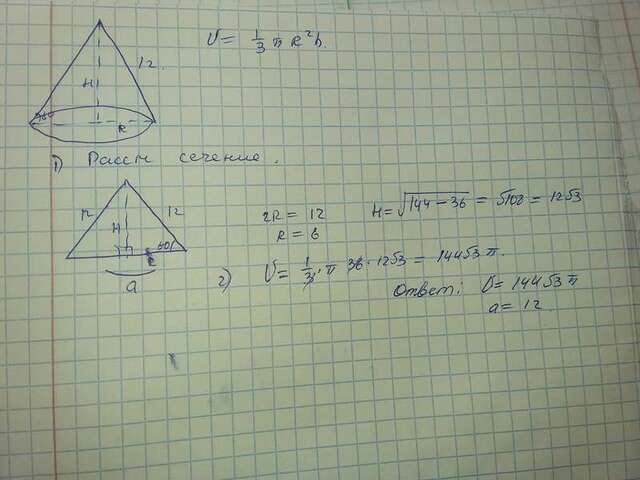 V = 1/3 π R²h.
12
H
60°
R
1) Рассм сечение.
12 12
H
60°
a
2R = 12 H = √144 - 36 = √108 = 12√3
R = 6
2) V = 1/3 · π 36 · 12√3 = 144√3 π.
Ответ: V = 144√3 π
a = 12.